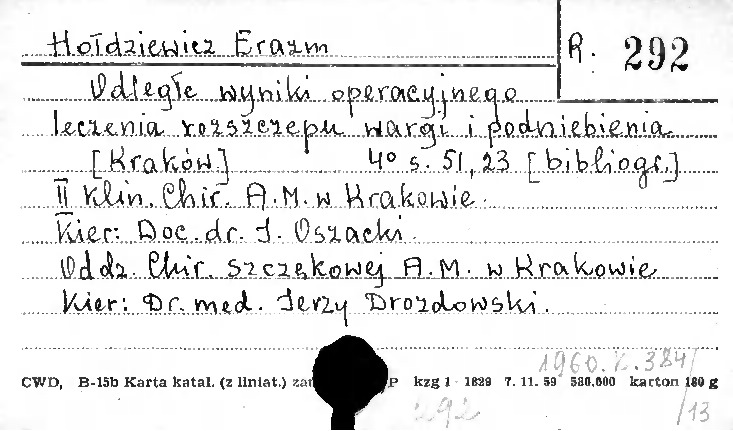 Hołdziewicz Erazm
R. 292
Odległe wyniki operacyjnego
leczenia rozszczepu wargi i podniebienia
[Kraków.] 4° s. 51, 23 [bibliogr.]
II Klin. Chir. A.M. w Krakowie.
Kier: Doc. dr. J. Oszacki.
Oddz. Chir. Szczękowej A.M. w Krakowie
Kier: Dr. med. Jerzy Drozdowski.
1960.K.384/
CWD, B-15b Karta katal. (z liniat.) P kzg 1 1829 7. 11. 59 580.000 karton 180 g
292 /13